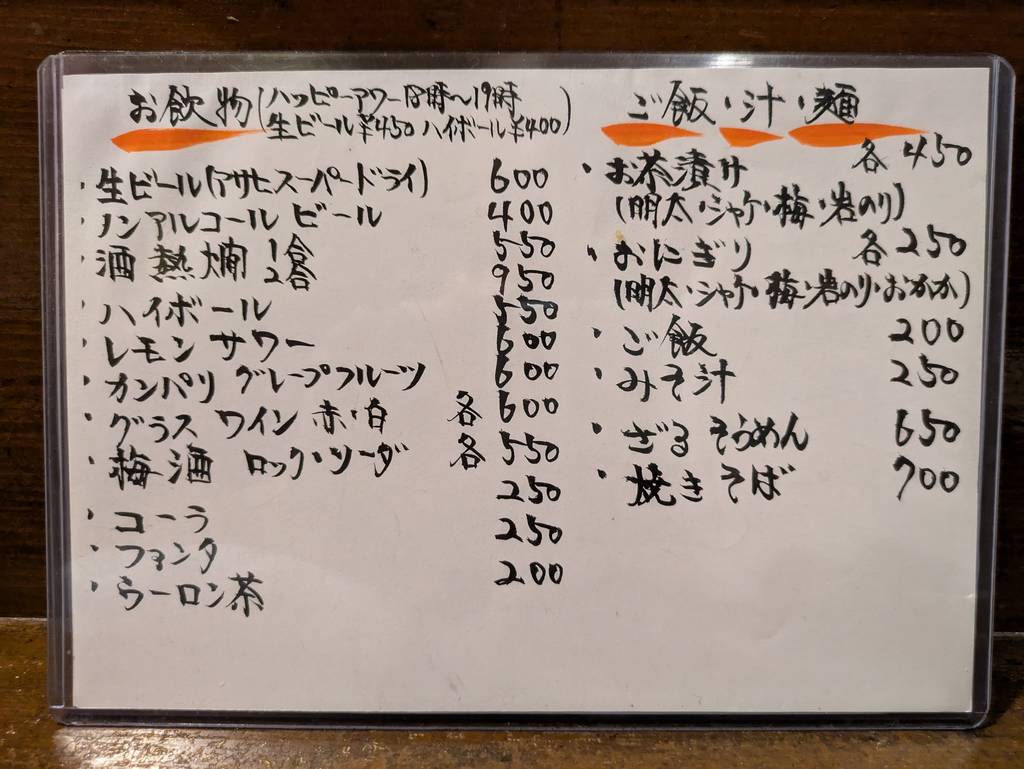 お飲物(ハッピーアワー18時〜19時
生ビール¥450 ハイボール¥400)
・生ビール(アサヒスーパードライ) 600
・ノンアルコールビール 400
・酒 熱燗 1合 550
2合 950
・ハイボール 550
・レモンサワー 600
・カンパリ グレープフルーツ 600
・グラスワイン 赤・白 各600
・梅酒 ロック・ソーダ 各550
・コーラ 250
・ファンタ 250
・ウーロン茶 200
ご飯・汁・麺
・お茶漬け 各450
(明太・シャケ・梅・岩のり)
・おにぎり 各250
(明太・シャケ・梅・岩のり・おかか)
・ご飯 200
・みそ汁 250
・ざるそうめん 650
・焼きそば 700